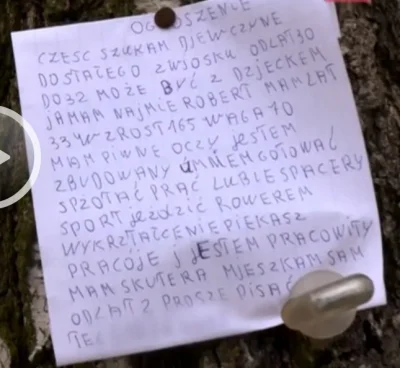 OGŁOSZENIE
CZESC SZUKAM DJEWCZYNE
DO STAŁEGO ZWJOSKU OD LAT 30
DO 32 MOŻE BYĆ Z DZJECKEM
JAMAM NAJMIE ROBERT MAM LAT
33 WZROST 165 WAGA 70
MAM PIWNE OCZY JESTEM
ZBUDOWANY UMNEM GOTOWAĆ
SPŻOTAĆ PRAĆ LUBLE SPACERY
SPORT JEŹDZIĆ ROWEREM
WYKRZTAŁCENIE PIEKASZ
PRACOJE J JESTEM PRACOWITY
MAM SKUTERA MJESZKAM SAM
OD LAT 2 PROSZE PISAĆ
TE